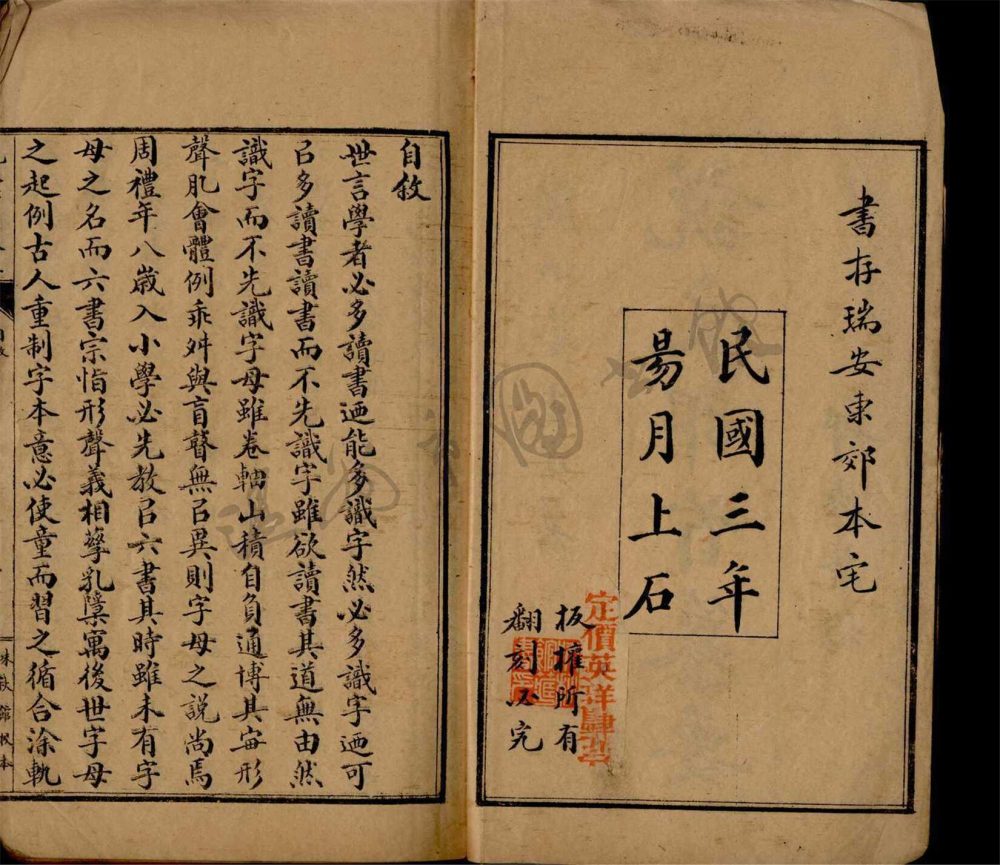 書存瑞安東郊本宅
民國三年
昜月上石
定價英洋肆
板權所有
翻刻必究
自敘
世言學者必多讀書迺能多識字然必多識字迺可
㠯多讀書讀書而不先識字雖欲讀書其道無由然
識字而不先識字母雖卷軸山積自負通博其形
聲肊會體例乖舛與盲瞽無㠯異則字母之說尚焉
周禮年八歲入小學必先教㠯六書其時雖未有字
母之名而六書宗恉形聲義相孳乳隱寓後世字母
之起例古人重制字本意必使童而習之循合涂軌